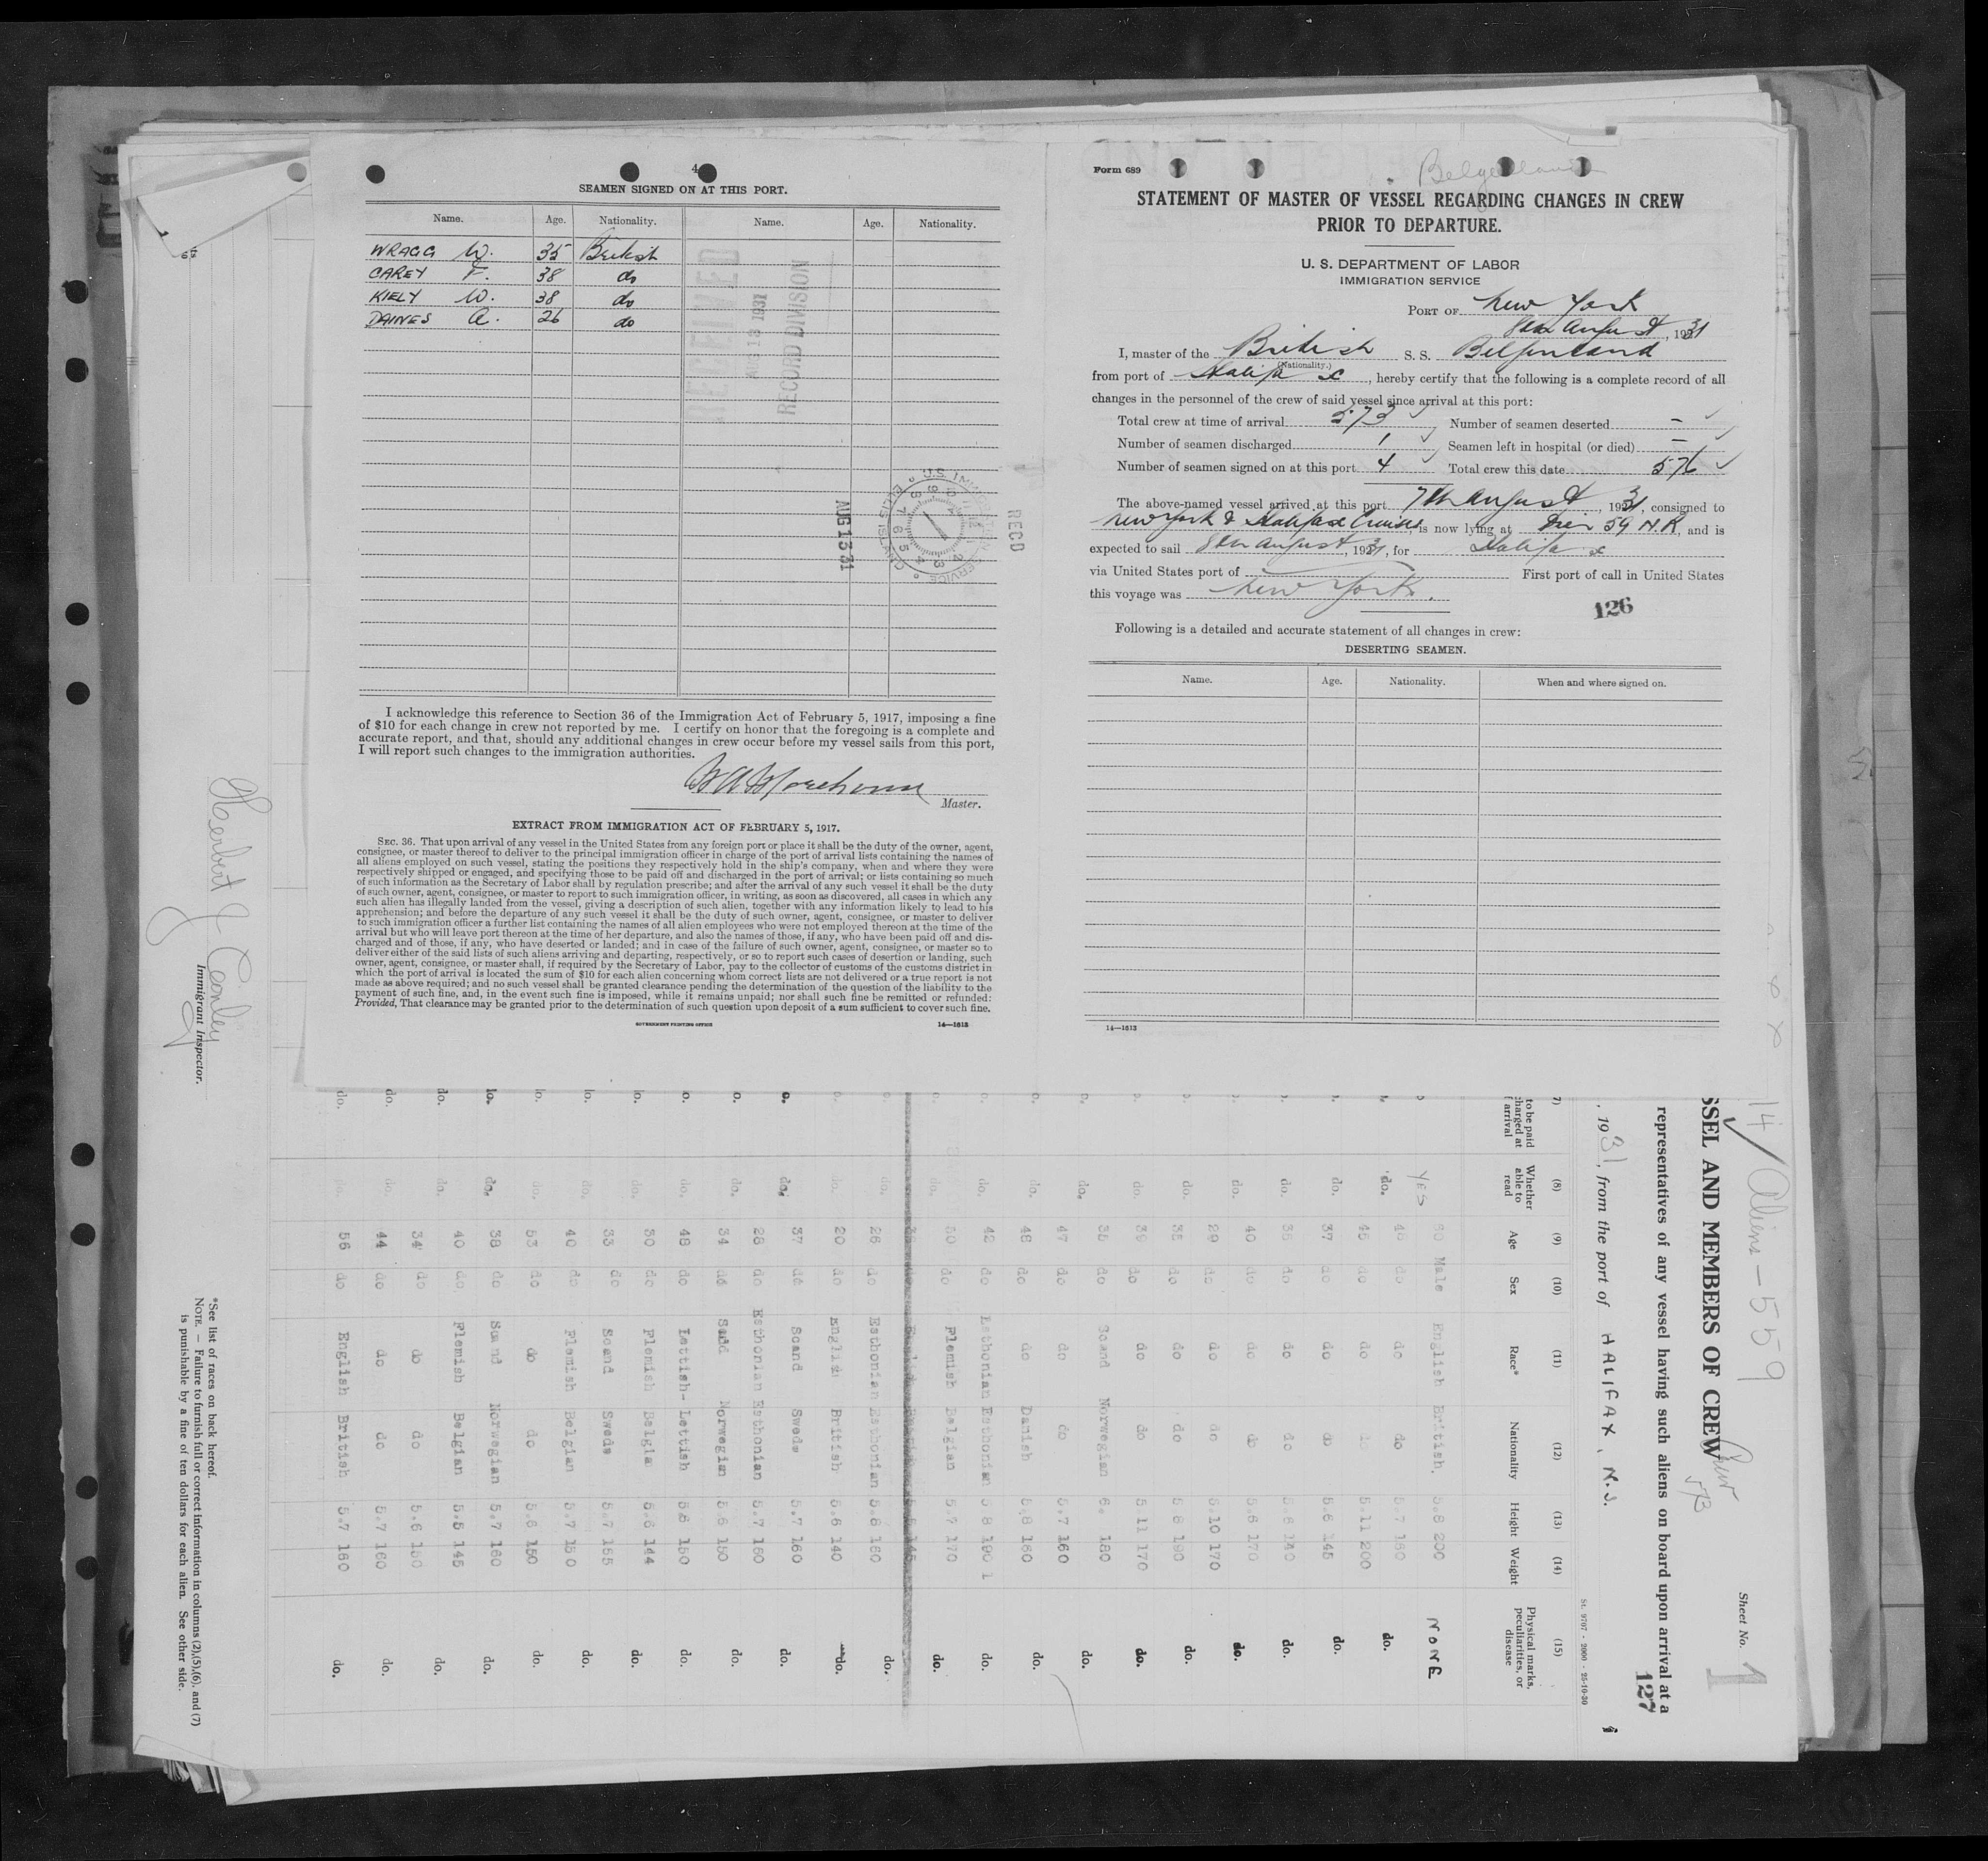 4
SEAMEN SIGNED ON AT THIS PORT.
Name. Age. Nationality. Name. Age. Nationality.
WRAGG W. 35 British
CAREY F. 38 do
KIELY W. 38 do
DAINES A. 26 do
RECEIVED
AUG 13 1931
RECORD DIVISION
AUG 13 31
REC'D
U.S. IMMIGRATION SERVICE
ELLIS ISLAND
I acknowledge this reference to Section 36 of the Immigration Act of February 5, 1917, imposing a fine
of $10 for each change in crew not reported by me. I certify on honor that the foregoing is a complete and
accurate report, and that, should any additional changes in crew occur before my vessel sails from this port,
I will report such changes to the immigration authorities.
Master.
EXTRACT FROM IMMIGRATION ACT OF FEBRUARY 5, 1917.
SEC. 36. That upon arrival of any vessel in the United States from any foreign port or place it shall be the duty of the owner, agent,
consignee, or master thereof to deliver to the principal immigration officer in charge of the port of arrival lists containing the names of
all aliens employed on such vessel, stating the positions they respectively hold in the ship's company, when and where they were
respectively shipped or engaged, and specifying those to be paid off and discharged in the port of arrival; or lists containing so much
of such information as the Secretary of Labor shall by regulation prescribe; and after the arrival of any such vessel it shall be the duty
of such owner, agent, consignee, or master to report to such immigration officer, in writing, as soon as discovered, all cases in which any
such alien has illegally landed from the vessel, giving a description of such alien, together with any information likely to lead to his
apprehension; and before the departure of any such vessel it shall be the duty of such owner, agent, consignee, or master to deliver
to such immigration officer a further list containing the names of all alien employees who were not employed thereon at the time of the
arrival but who will leave port thereon at the time of her departure, and also the names of those, if any, who have been paid off and dis-
charged and of those, if any, who have deserted or landed; and in case of the failure of such owner, agent, consignee, or master so to
deliver either of the said lists of such aliens arriving and departing, respectively, or so to report such cases of desertion or landing, such
owner, agent, consignee, or master shall, if required by the Secretary of Labor, pay to the collector of customs of the customs district in
which the port of arrival is located the sum of $10 for each alien concerning whom correct lists are not delivered or a true report is not
made as above required; and no such vessel shall be granted clearance pending the determination of the question of the liability to the
payment of such fine, and, in the event such fine is imposed, while it remains unpaid; nor shall such fine be remitted or refunded:
Provided, That clearance may be granted prior to the determination of such question upon deposit of a sum sufficient to cover such fine.
GOVERNMENT PRINTING OFFICE 14—1613
Form 689
Belgenland
STATEMENT OF MASTER OF VESSEL REGARDING CHANGES IN CREW
PRIOR TO DEPARTURE.
U. S. DEPARTMENT OF LABOR
IMMIGRATION SERVICE
PORT OF New York
8th August, 1931
I, master of the British S. S. Belgenland
(Nationality.)
from port of Halifax, hereby certify that the following is a complete record of all
changes in the personnel of the crew of said vessel since arrival at this port:
Total crew at time of arrival 573 Number of seamen deserted –
Number of seamen discharged 1 Seamen left in hospital (or died) –
Number of seamen signed on at this port 4 Total crew this date 576
The above-named vessel arrived at this port 7th August, 1931, consigned to
New York & Halifax Cruises, is now lying at Pier 59 N.R., and is
expected to sail 8th August, 1931, for Halifax
via United States port of First port of call in United States
this voyage was New York.
126
Following is a detailed and accurate statement of all changes in crew:
DESERTING SEAMEN.
Name. Age. Nationality. When and where signed on.
14—1613
14 Aliens - 559
Sheet No. 1
SSEL AND MEMBERS OF CREW
Crew 573
representatives of any vessel having such aliens on board upon arrival at a
127
, 1931, from the port of HALIFAX, N.S.
St. 9707 - 2000 - 25-10-30
7) (8) (9) (10) (11) (12) (13) (14) (15)
to be paid
charged at
f arrival
Whether able to read Age Sex Race* Nationality Height Weight Physical marks, peculiarities, or disease
YES 50 Male English British. 5.8 200 NONE
do. do do do 5.7 do.
45 do do do 5.11 200
do. 37 do do do 5.6 145 do.
do. do do do do.
do. 40 do do do 5.6 170 do.
29 do do do 5.10 170
do. 35 do do do 5 8 190 do.
do. 39 do do do 5 11 170 do.
35 do Scand Norwegian 6. 180
do. 47 do do do 5.7 160 do.
do. 48 do do Danish 5.8 160 do.
do. 42 do Esthonian Esthonian 5 8 190 do.
do. do Flemish Belgian 5.7 170 do.
do. 26 do Esthonian Esthonian 5.8 160 do.
do. 20 do English British 5.6 140 do.
do. 37 do Scand Swede 5.7 160 do.
28 do Esthonian Esthonian 5.7 160
do. 34 do Scand Norwegian 5.6 150 do.
do. 48 do Lettish Lettish 5.8 150 do.
do. 30 do Flemish Belgia 5.6 144 do.
33 do Scand Swede 5.7 155
do. 40 do Flemish Belgian 5.7 150 do.
do. 53 do do do 5.6 150 do.
do. 38 do Scand Norwegian 5.7 160 do.
do. 40 do Flemish Belgian 5.5 145 do.
34 do do do 5.6 150
do. 44 do do do 5.7 160 do.
do. 56 do English British 5.7 160 do.
Herbert J Conley
Immigrant Inspector.
*See list of races on back hereof.
NOTE. — Failure to furnish full or correct information in columns (2),(5),(6), and (7)
is punishable by a fine of ten dollars for each alien. See other side.